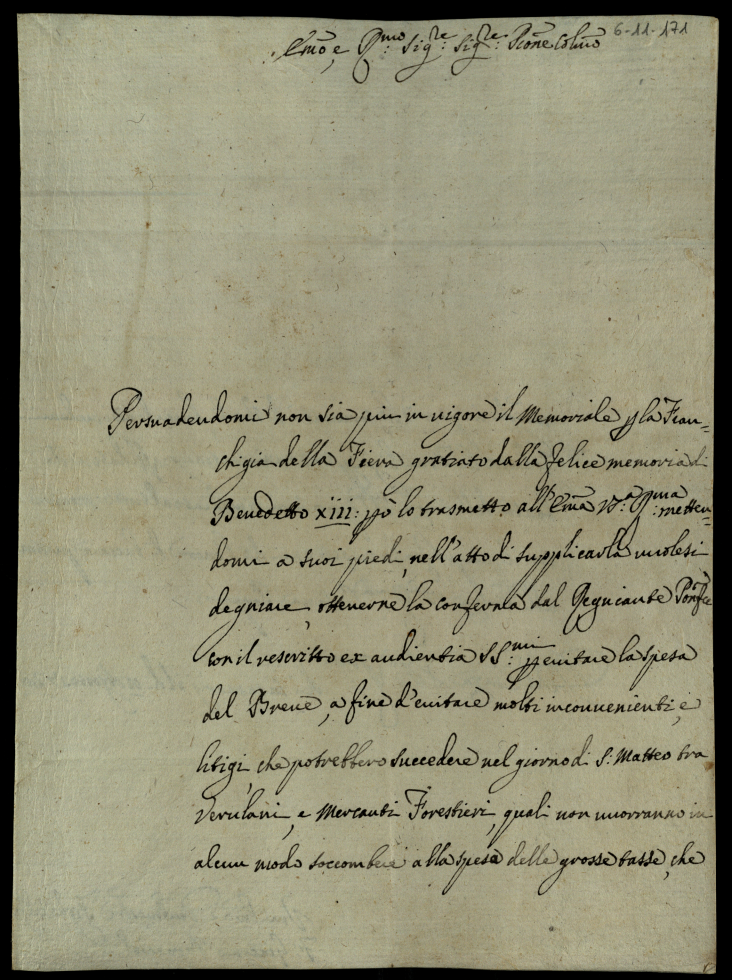 Emo, e Rmo: Sigre: Sigre: Prõne Colmo 6-11-171
Persuadendomi non sia piu in uigore il Memoriale p la Fran=
chigia della Fiera gratiato dalla felice memoria di
Benedetto XIII: pò lo trasmetto all'Ema Va: Rma: metten=
domi a suoi piedi, nell'atto di supplicarla uolesi
degniare, ottenerne la conferma dal Regniante Ponfce
con il rescritto ex audientia SSmi: p euitare la spesa
del Breue, a fine d'euitare molti inconuenienti, e
litigi, che potrebbero succedere nel giorno di S: Matteo tra
Verulani, e Mercanti Forestieri, quali non uorranno in
alcun modo soccombere alla spesa delle grosse tasse, che